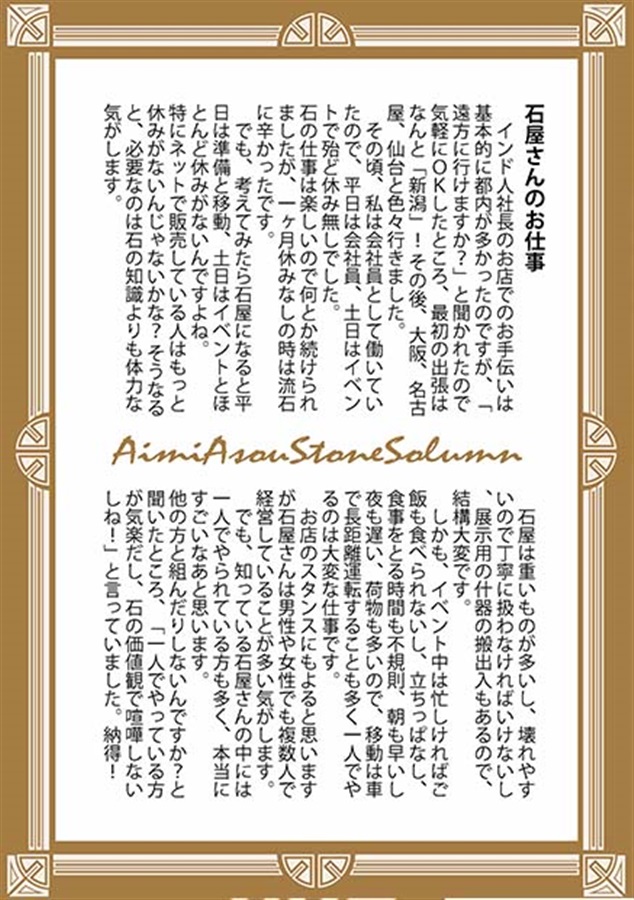 石屋さんのお仕事
インド人社長のお店でのお手伝いは
基本的に都内が多かったのですが、「
遠方に行けますか？」と聞かれたので
気軽にOKしたところ、最初の出張は
なんと「新潟」！その後、大阪、名古
屋、仙台と色々行きました。
その頃、私は会社員として働いてい
たので、平日は会社員、土日はイベン
トで殆ど休み無しでした。
石の仕事は楽しいので何とか続けられ
ましたが、一ヶ月休みなしの時は流石
に辛かったです。
でも、考えてみたら石屋になると平
日は準備と移動、土日はイベントとほ
とんど休みがないんですよね。
特にネットで販売している人はもっと
休みがないんじゃないかな？そうなる
と、必要なのは石の知識よりも体力な
気がします。
AimiAsouStoneSolumn
石屋は重いものが多いし、壊れやす
いので丁寧に扱わなければいけないし
、展示用の什器の搬出入もあるので、
結構大変です。
しかも、イベント中は忙しければご
飯も食べられないし、立ちっぱなし、
食事をとる時間も不規則、朝も早いし
夜も遅い、荷物も多いので、移動は車
で長距離運転することも多く一人でや
るのは大変な仕事です。
お店のスタンスにもよると思います
が石屋さんは男性や女性でも複数人で
経営していることが多い気がします。
でも、知っている石屋さんの中には
一人でやられている方も多く、本当に
すごいなあと思います。
他の方と組んだりしないんですか？と
聞いたところ、「一人でやっている方
が気楽だし、石の価値観で喧嘩しない
しね！」と言っていました。納得！